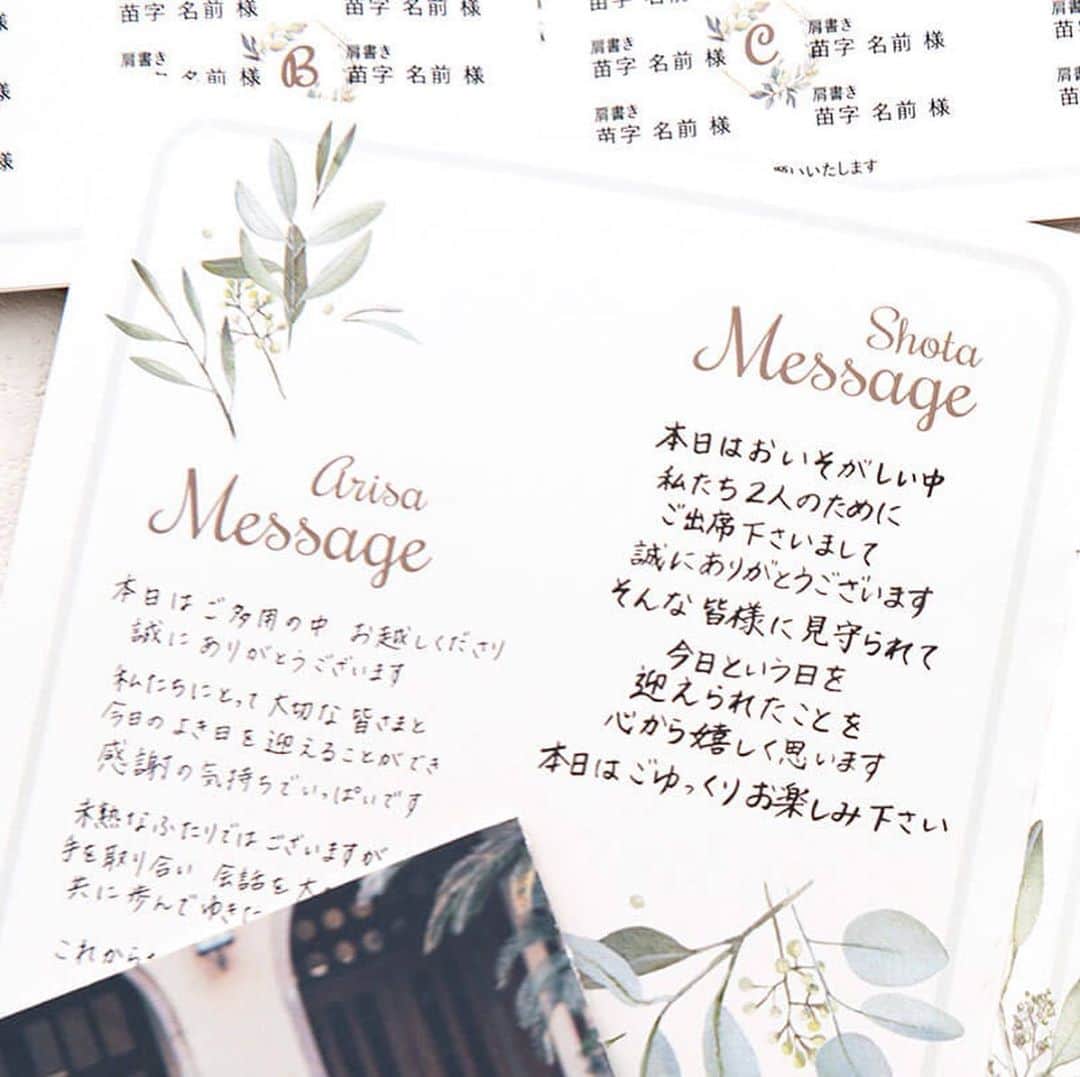 肩書き
苗字 名前 様
肩書き
名前 様
B
苗字 名前 様
肩書き
苗字 名前 様
苗字 名前 様
肩書き
苗字 名前 様
肩書き
苗字 名前 様
C
苗字 名前 様
肩書き
苗字 名前 様
肩書き
肩書き
いいたします
Shota
Message
本日はおいそがしい中
私たち2人のために
ご出席下さいまして
誠にありがとうございます
そんな皆様に見守られて
今日という日を
迎えられたことを
心から嬉しく思います
本日はごゆっくりお楽しみ下さい
Arisa
Message
本日はご多用の中 お越しくださり
誠にありがとうございます
私たちにとって大切な皆さまと
今日のよき日を迎えることができ
感謝の気持ちでいっぱいです
未熟なふたりではございますが
手を取り合い 会話を大
共に歩んでゆきた
これから